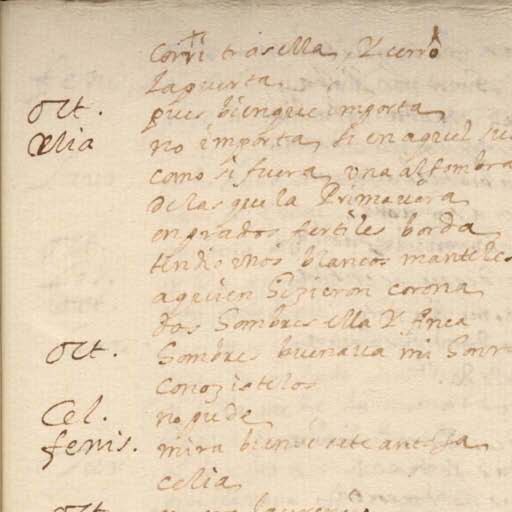 corri tras ella, Y cerró
la puerta
Oct. pues bien que importa
Celia no importa, si en aquel sue
como si fuera una alfombra
de las que la Primavera
en prados fertiles borda
tendio unos blancos manteles
a quien hizieron corona
dos hombres ella Y Anca
Oct. hombres buena va mi honr
conozistelos
Cel. no pude
fenis. mira bien si te antoja
celia
Oct.